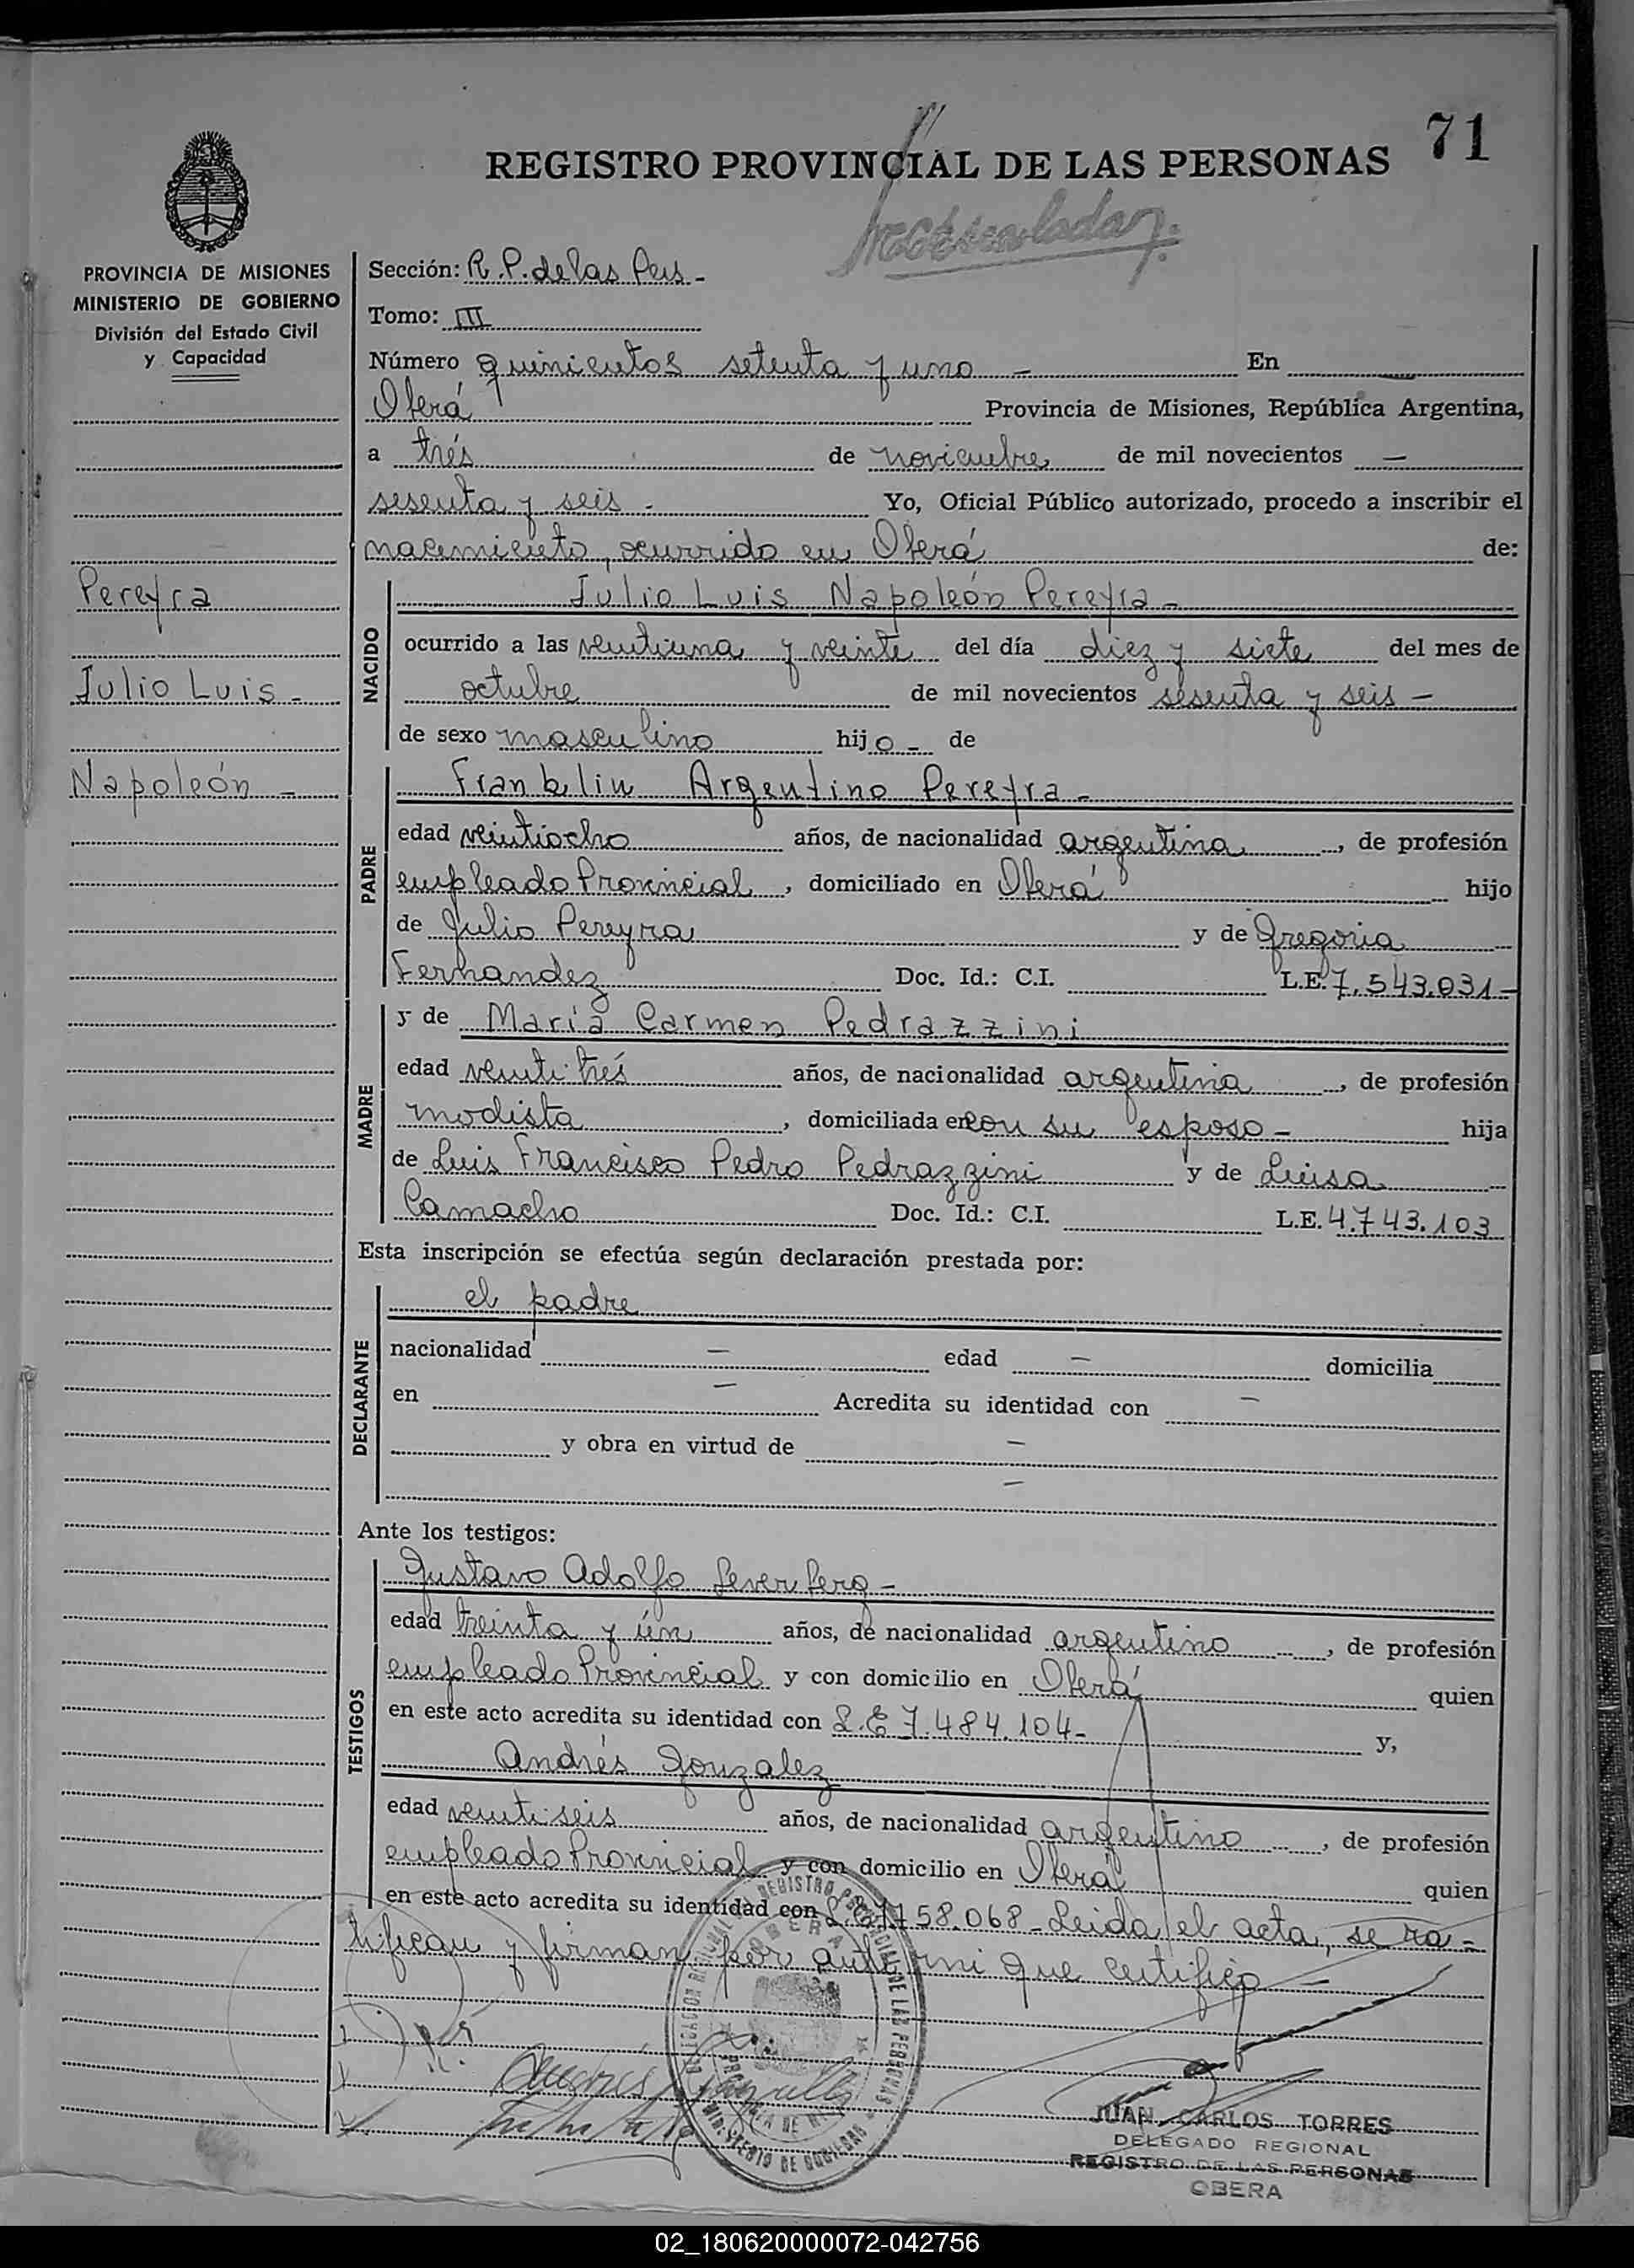 71
REGISTRO PROVINCIAL DE LAS PERSONAS
PROVINCIA DE MISIONES
MINISTERIO DE GOBIERNO
División del Estado Civil
y Capacidad
Pereyra
Julio Luis -
Napoleón -
Sección: R.P. de las Pers -
Tomo: III
Número quinientos setenta y uno - En
Oberá Provincia de Misiones, República Argentina,
a trés de noviembre de mil novecientos —
sesenta y seis - Yo, Oficial Público autorizado, procedo a inscribir el
nacimiento, ocurrido en Oberá de:
NACIDO
Julio Luis Napoleón Pereyra -
ocurrido a las veintiuna y veinte del día diez y siete del mes de
octubre de mil novecientos sesenta y seis -
de sexo masculino hijo - de
PADRE
Franklin Argentino Pereyra -
edad veintiocho años, de nacionalidad argentina, de profesión
empleado Provincial, domiciliado en Oberá hijo
de Julio Pereyra y de Gregoria
Fernandez Doc. Id.: C.I. L.E. 7.543.031 -
MADRE
y de María Carmen Pedrazzini
edad veintitrés años, de nacionalidad argentina, de profesión
modista, domiciliada en con su esposo - hija
de Luis Francisco Pedro Pedrazzini y de Luisa
Camacho Doc. Id.: C.I. L.E. 4.743.103
Esta inscripción se efectúa según declaración prestada por:
DECLARANTE
el padre
nacionalidad — edad — domicilia
en — Acredita su identidad con —
y obra en virtud de —
—
Ante los testigos:
TESTIGOS
Gustavo Adolfo -
edad treinta y ún años, de nacionalidad argentino, de profesión
empleado Provincial y con domicilio en Oberá quien
en este acto acredita su identidad con L.E 7.484.104 - y,
Andrés Gonzalez
edad veintiseis años, de nacionalidad argentino, de profesión
empleado Provincial y con domicilio en Oberá quien
en este acto acredita su identidad con 58.068 - Leida el acta, se ra-
tifican y firman por ante mi que certifico -
JUAN CARLOS TORRES
DELEGADO REGIONAL
REGISTRO DE LAS PERSONAS
OBERA
02_180620000072-042756